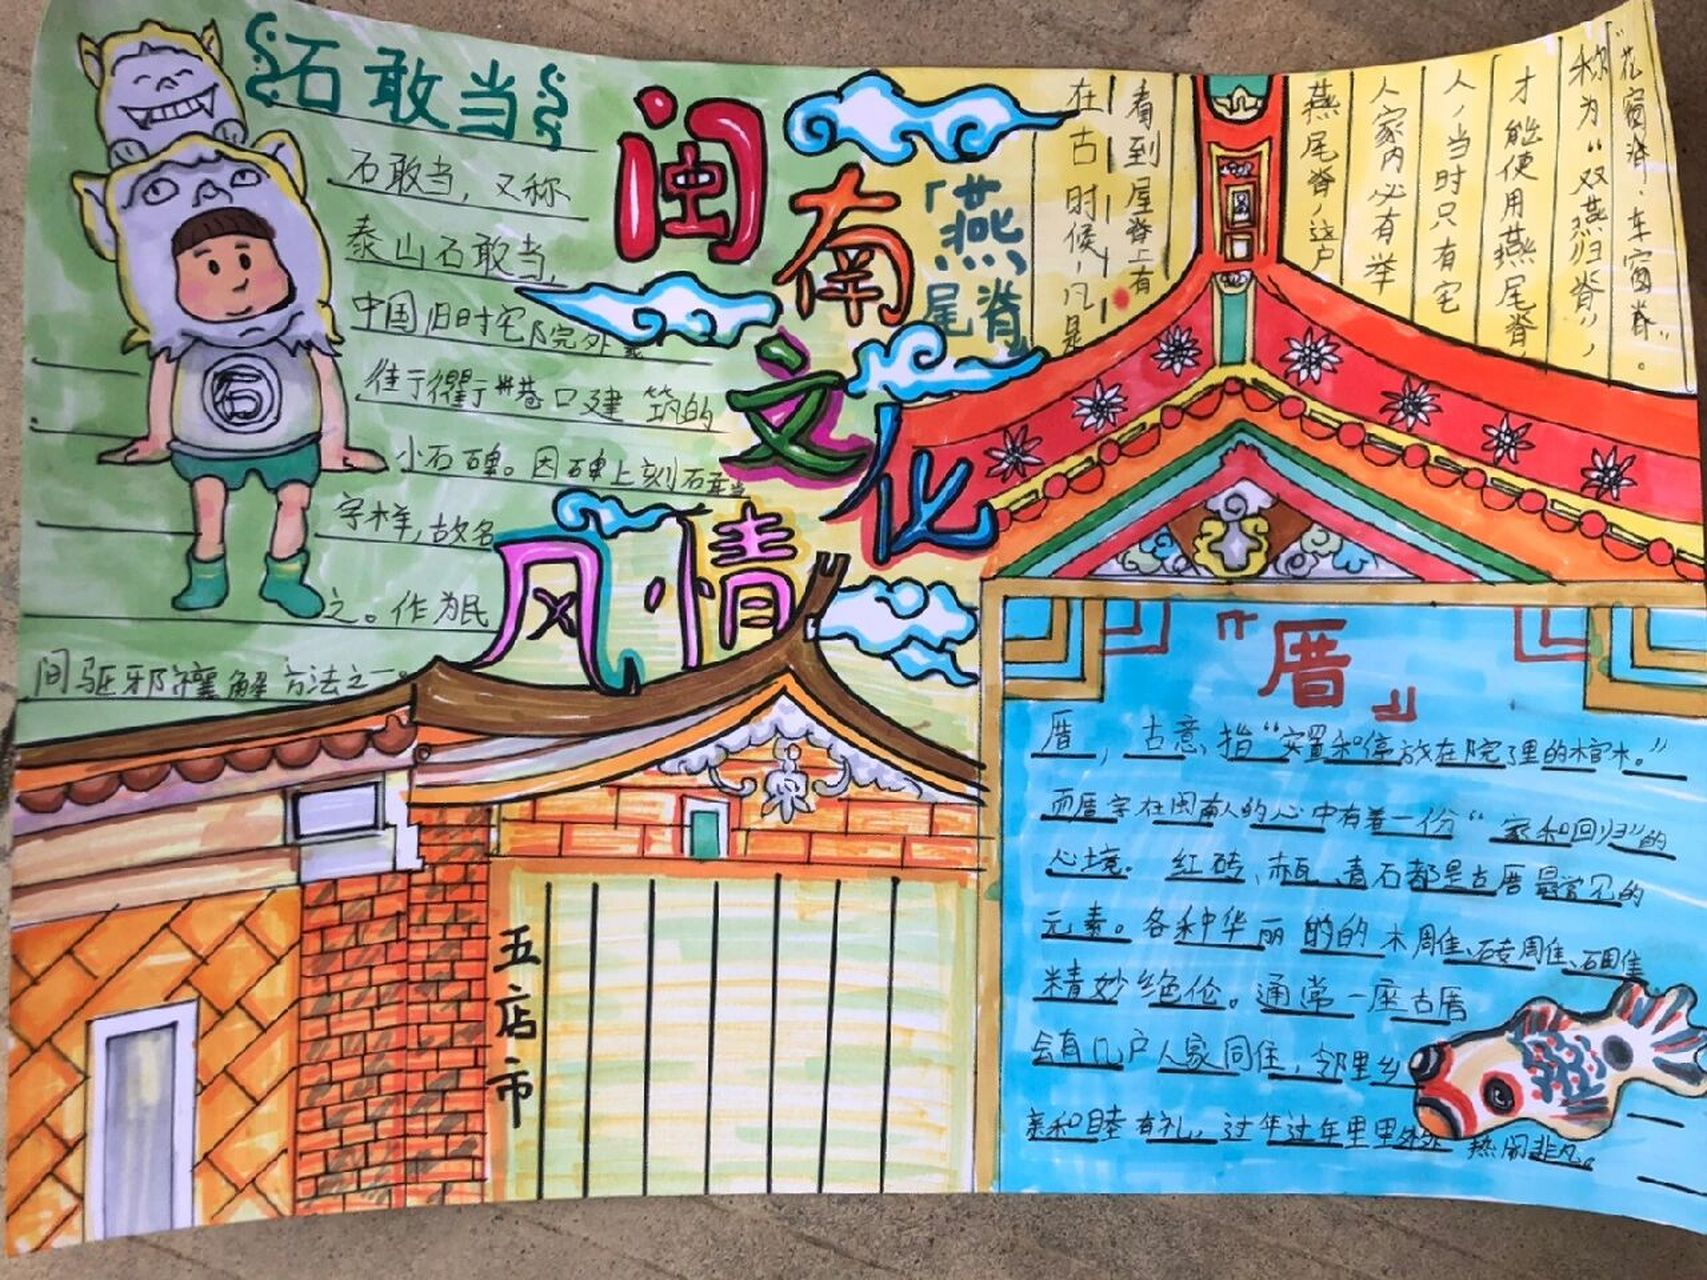 石敢当
石敢当，又称
泰山石敢当，
中国旧时宅院外或
街于衢于巷口建筑的
小石碑。因碑上刻石敢当
字样，故名
之。作为民
间驱邪禳解方法之一。
石
闽南文化
风情
「燕尾脊」
在古时候，凡是
看到屋脊上有
燕尾脊，这户
人家内必有举
人，当时只有官
才能使用燕尾脊，
称为“双燕归脊”，
“花窗脊、车窗脊”。
五店市
『厝』
厝，古意指“安置和停放在院子里的棺木。”
而厝字在闽南人的心中有着一份“家和回归”的
心境。红砖、赤瓦、青石都是古厝最常见的
元素。各种华丽的的木雕、砖雕、石雕
精妙绝伦。通常一座古厝
会有几户人家同住，邻里乡
亲和睦有礼，过年过年里里外外热闹非凡。